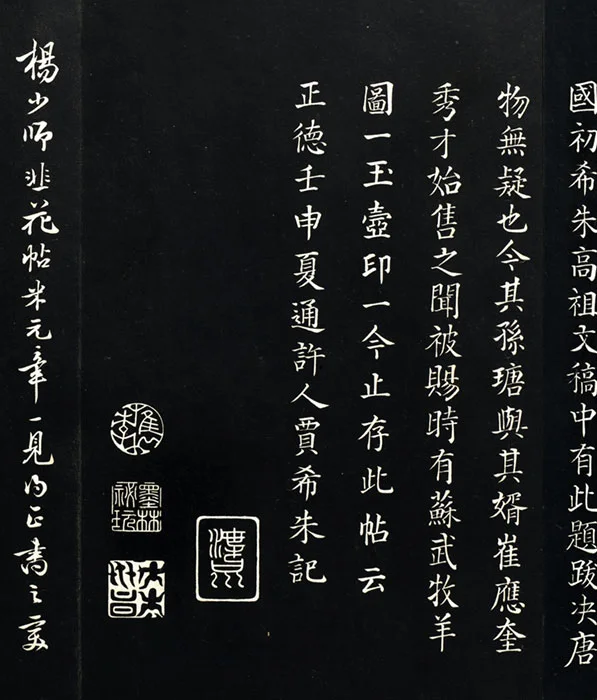 國初希朱高祖文稿中有此題跋决唐
物無疑也今其孫瑭與其婿崔應奎
秀才始售之聞被賜時有蘇武牧羊
圖一玉壺印一今止存此帖云
正德壬申夏通許人賈希朱記
樵李
墨林祕玩
楊少師韭花帖米元章一見為正書之變